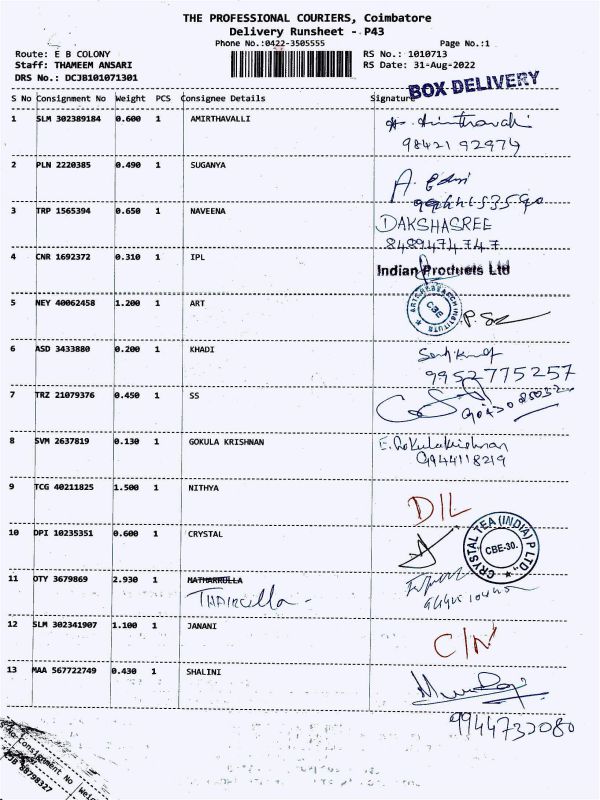 THE PROFESSIONAL COURIERS, Coimbatore
Delivery Runsheet - P43
Phone No.:0422-3505555
Page No.:1
Route: E B COLONY
RS No.: 1010713
Staff: THAMEEM ANSARI
RS Date: 31-Aug-2022
DRS No.: DCJB101071301
BOX DELIVERY
S No Consignment No Weight PCS Consignee Details Signature
1 SLM 302389184 0.600 1 AMIRTHAVALLI
98421 92974
2 PLN 2220385 0.490 1 SUGANYA
3 TRP 1565394 0.650 1 NAVEENA DAKSHASREE
8489474747
4 CNR 1692372 0.310 1 IPL
Indian Products Ltd
5 NEY 40062458 1.200 1 ART
ARTS RESEARCH INSTITUTE CBE
6 ASD 3433880 0.200 1 KHADI
9952775257
7 TRZ 21079376 0.450 1 SS
8 SVM 2637819 0.130 1 GOKULA KRISHNAN E. Gokulakrishnan
9944118219
9 TCG 40211825 1.500 1 NITHYA D/L
10 DPI 10235351 0.600 1 CRYSTAL
CRYSTAL TEA (INDIA) P LTD., CBE-30.
11 OTY 3679869 2.930 1 NATHARRULLA
12 SLM 302341907 1.100 1 JANANI C/N
13 MAA 567722749 0.430 1 SHALINI
9944732080
No Consignment No